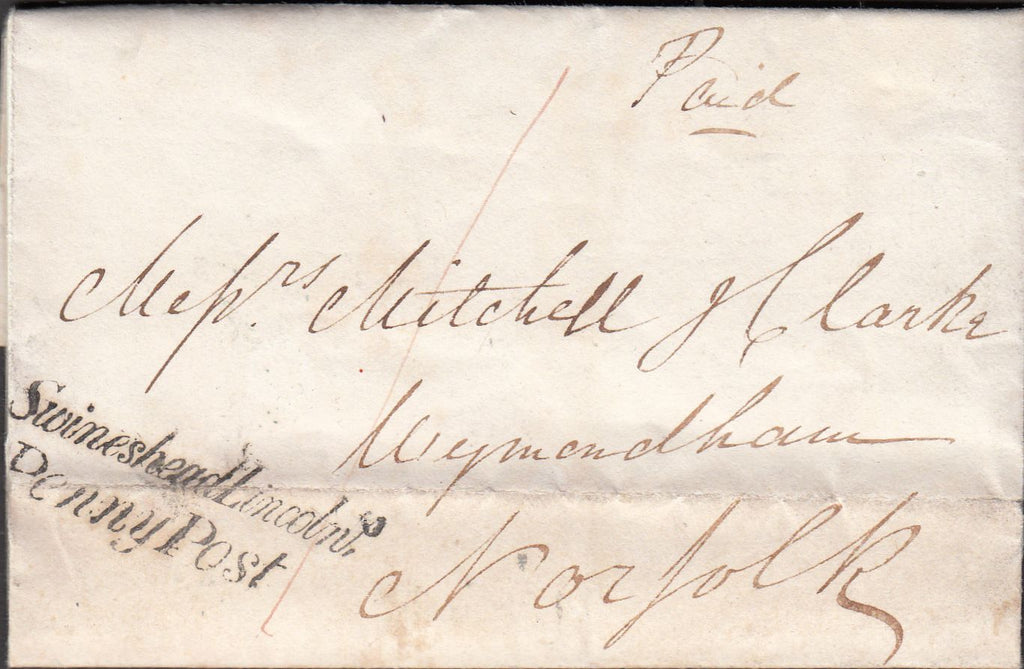 Paid
Messrs. Mitchell & Clarke
Wymondham
Norfolk
Swineshead Lincolns.
Penny Post